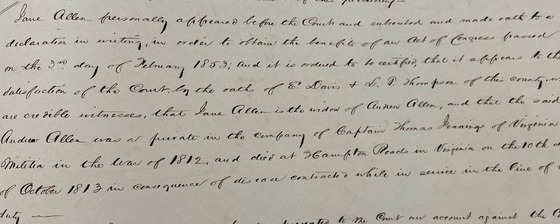 Jane Allen personally appeared before the Court and subscribed and made oath to a
declaration in writing, in order to obtain the benefits of an Act of Congress passed
on the 3rd day of February 1853; and it is ordered to be certified, that it appears to the
satisfaction of the Court, by the oaths of E. Davis & L. P. Thompson of this county, w
are credible witnesses, that Jane Allen is the widow of Andrew Allen, and that the said
Andrew Allen was a private in the company of Captain Thomas Jennings of Virginia
Militia in the War of 1812, and died at Hampton Roads in Virginia on the 10th d
of October 1813 in consequence of disease contracted while in service in the line of
duty —
to the Court an account against the